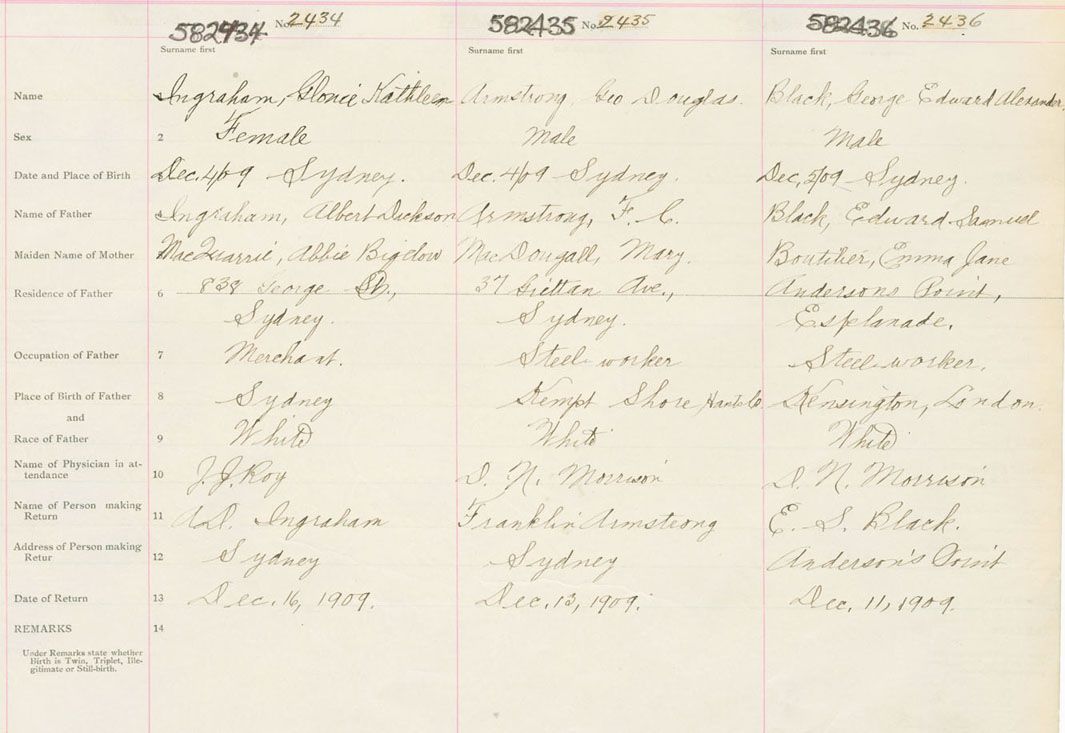 582434 No. 2434 582435 No. 2435 582436 No. 2436
Surname first Surname first Surname first
Name 1 Ingraham, Glonie Kathleen Armstrong, Geo Douglas. Black, George Edward Alexander
Sex 2 Female Male Male
Date and Place of Birth Dec. 4/09 Sydney. Dec. 4/09 Sydney. Dec, 5/09 Sydney.
Name of Father 4 Ingraham, Albert Dickson Armstrong, F. C. Black, Edward Samuel
Maiden Name of Mother MacQuarrie, Abbie Bigelow MacDougall, Mary. Boutilier, Emma Jane
Residence of Father 6 838 George St., 37 Ave., Andersons Point,
Sydney. Sydney. Esplanade.
Occupation of Father 7 Merchant. Steel worker Steel worker.
Place of Birth of Father 8 Sydney Kempt Shore, Hants Co Kensington, London.
and
Race of Father 9 White White White
Name of Physician in at-
tendance 10 J. J. Roy D. N. Morrison D. N. Morrison
Name of Person making
Return 11 A. D. Ingraham Franklin Armstrong E. S. Black.
Address of Person making
Retur 12 Sydney Sydney Anderson's Point
Date of Return 13 Dec. 16, 1909. Dec. 13, 1909. Dec. 11, 1909.
REMARKS 14
Under Remarks state whether
Birth is Twin, Triplet, Ille-
gitimate or Still-birth.